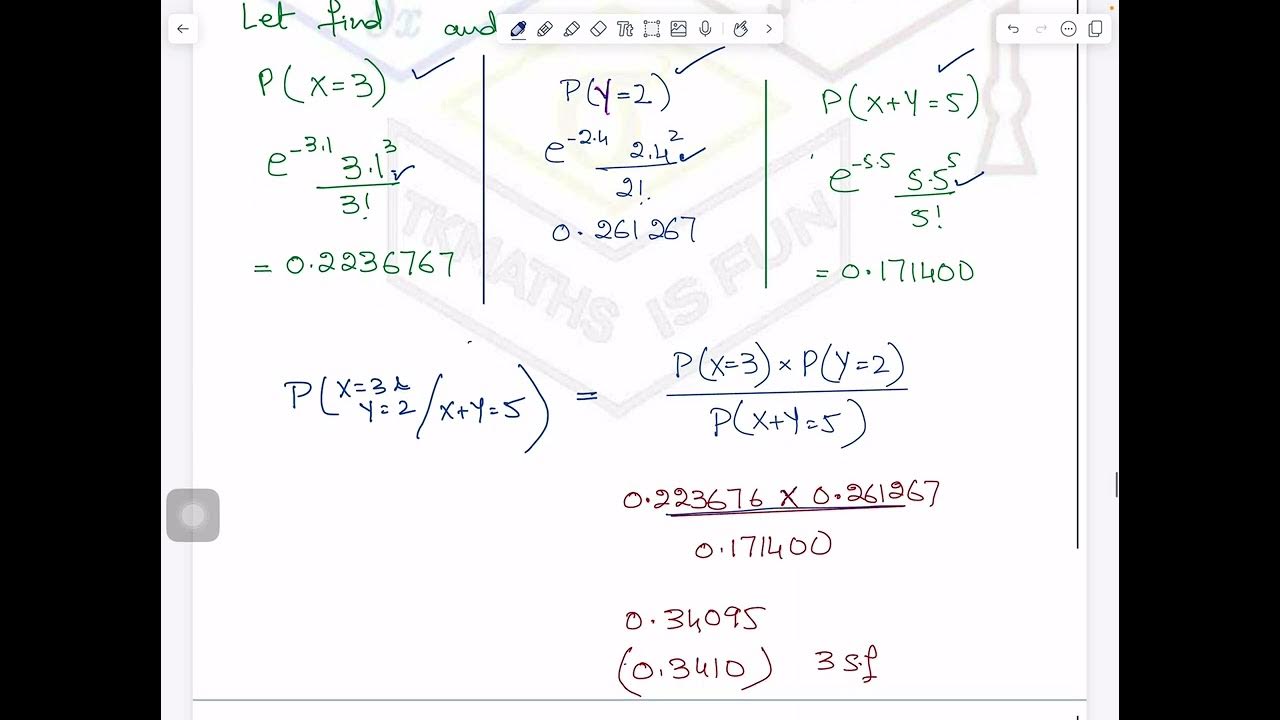 Let find and
P(X=3)
e^-3.1 3.1^3
3!
= 0.2236767
P(Y=2)
e^-2.4 2.4^2
2!
0.261267
P(X+Y=5)
e^-5.5 5.5^5
5!
= 0.171400
TKMATHS IS FUN
P(X=3 & Y=2 / X+Y=5) = P(X=3) × P(Y=2)
P(X+Y=5)
0.223676 × 0.261267
0.171400
0.34095
(0.3410) 3 s.f